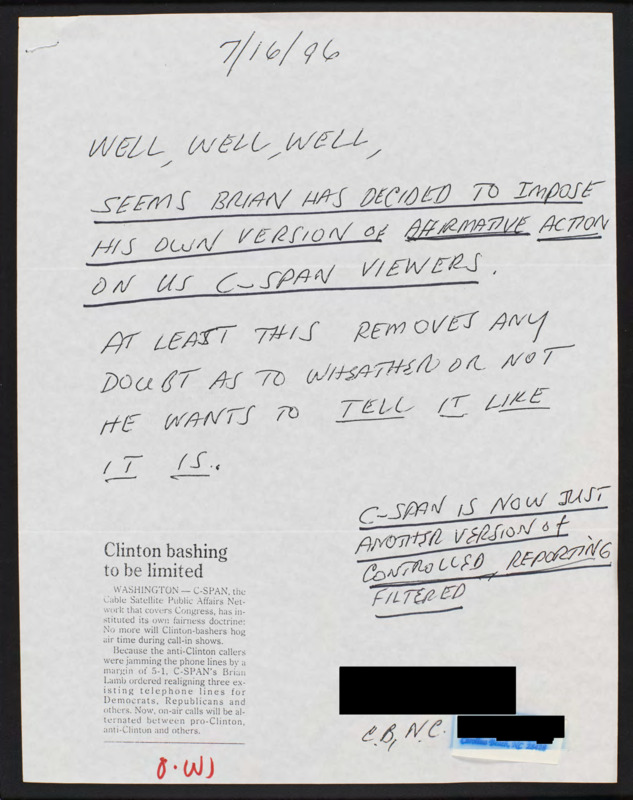 7/16/96
WELL, WELL, WELL,
SEEMS BRIAN HAS DECIDED TO IMPOSE
HIS OWN VERSION OF AFFIRMATIVE ACTION
ON US C-SPAN VIEWERS.
AT LEAST THIS REMOVES ANY
DOUBT AS TO WHEATHER OR NOT
HE WANTS TO TELL IT LIKE
IT IS.
C-SPAN IS NOW JUST
ANOTHER VERSION OF
CONTROLLED, REPORTING
FILTERED
Clinton bashing
to be limited
WASHINGTON — C-SPAN, the
Cable Satellite Public Affairs Net-
work that covers Congress, has in-
stituted its own fairness doctrine:
No more will Clinton-bashers hog
air time during call-in shows.
Because the anti-Clinton callers
were jamming the phone lines by a
margin of 5-1, C-SPAN's Brian
Lamb ordered realigning three ex-
isting telephone lines for
Democrats, Republicans and
others. Now, on-air calls will be al-
ternated between pro-Clinton,
anti-Clinton and others.
C.B, N.C.